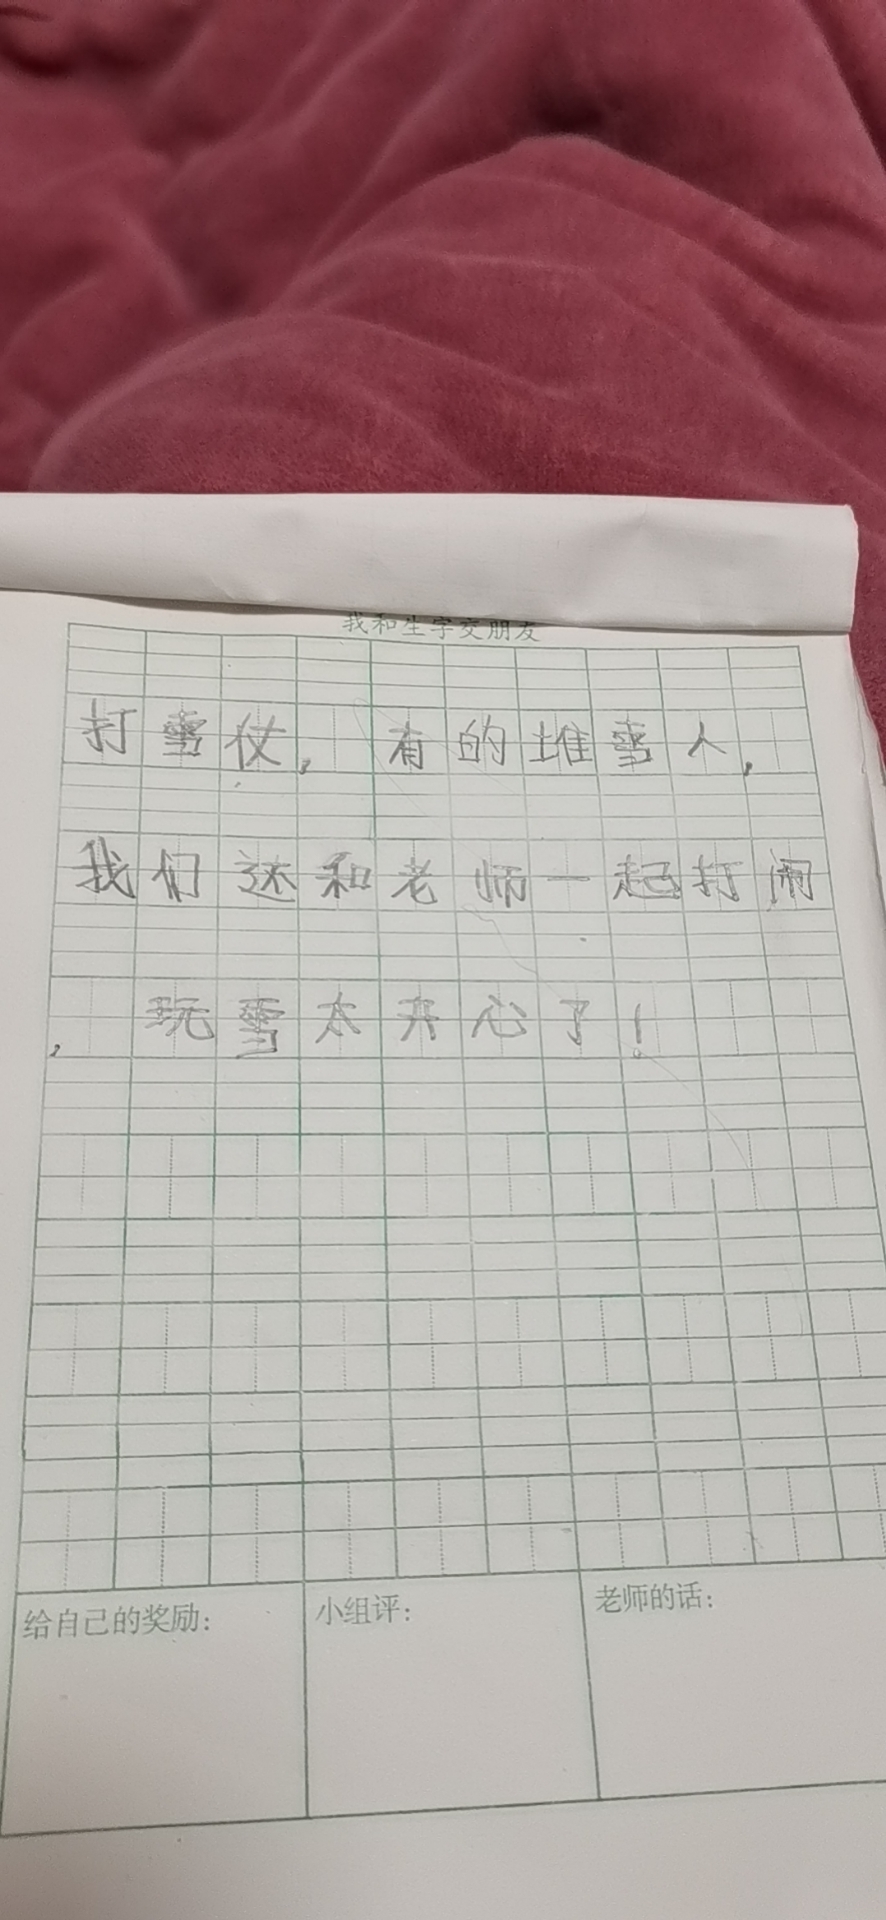 我和生字交朋友
打雪仗,有的堆雪人,
我们还和老师一起打闹
,玩雪太开心了!
给自己的奖励:
小组评:
老师的话: